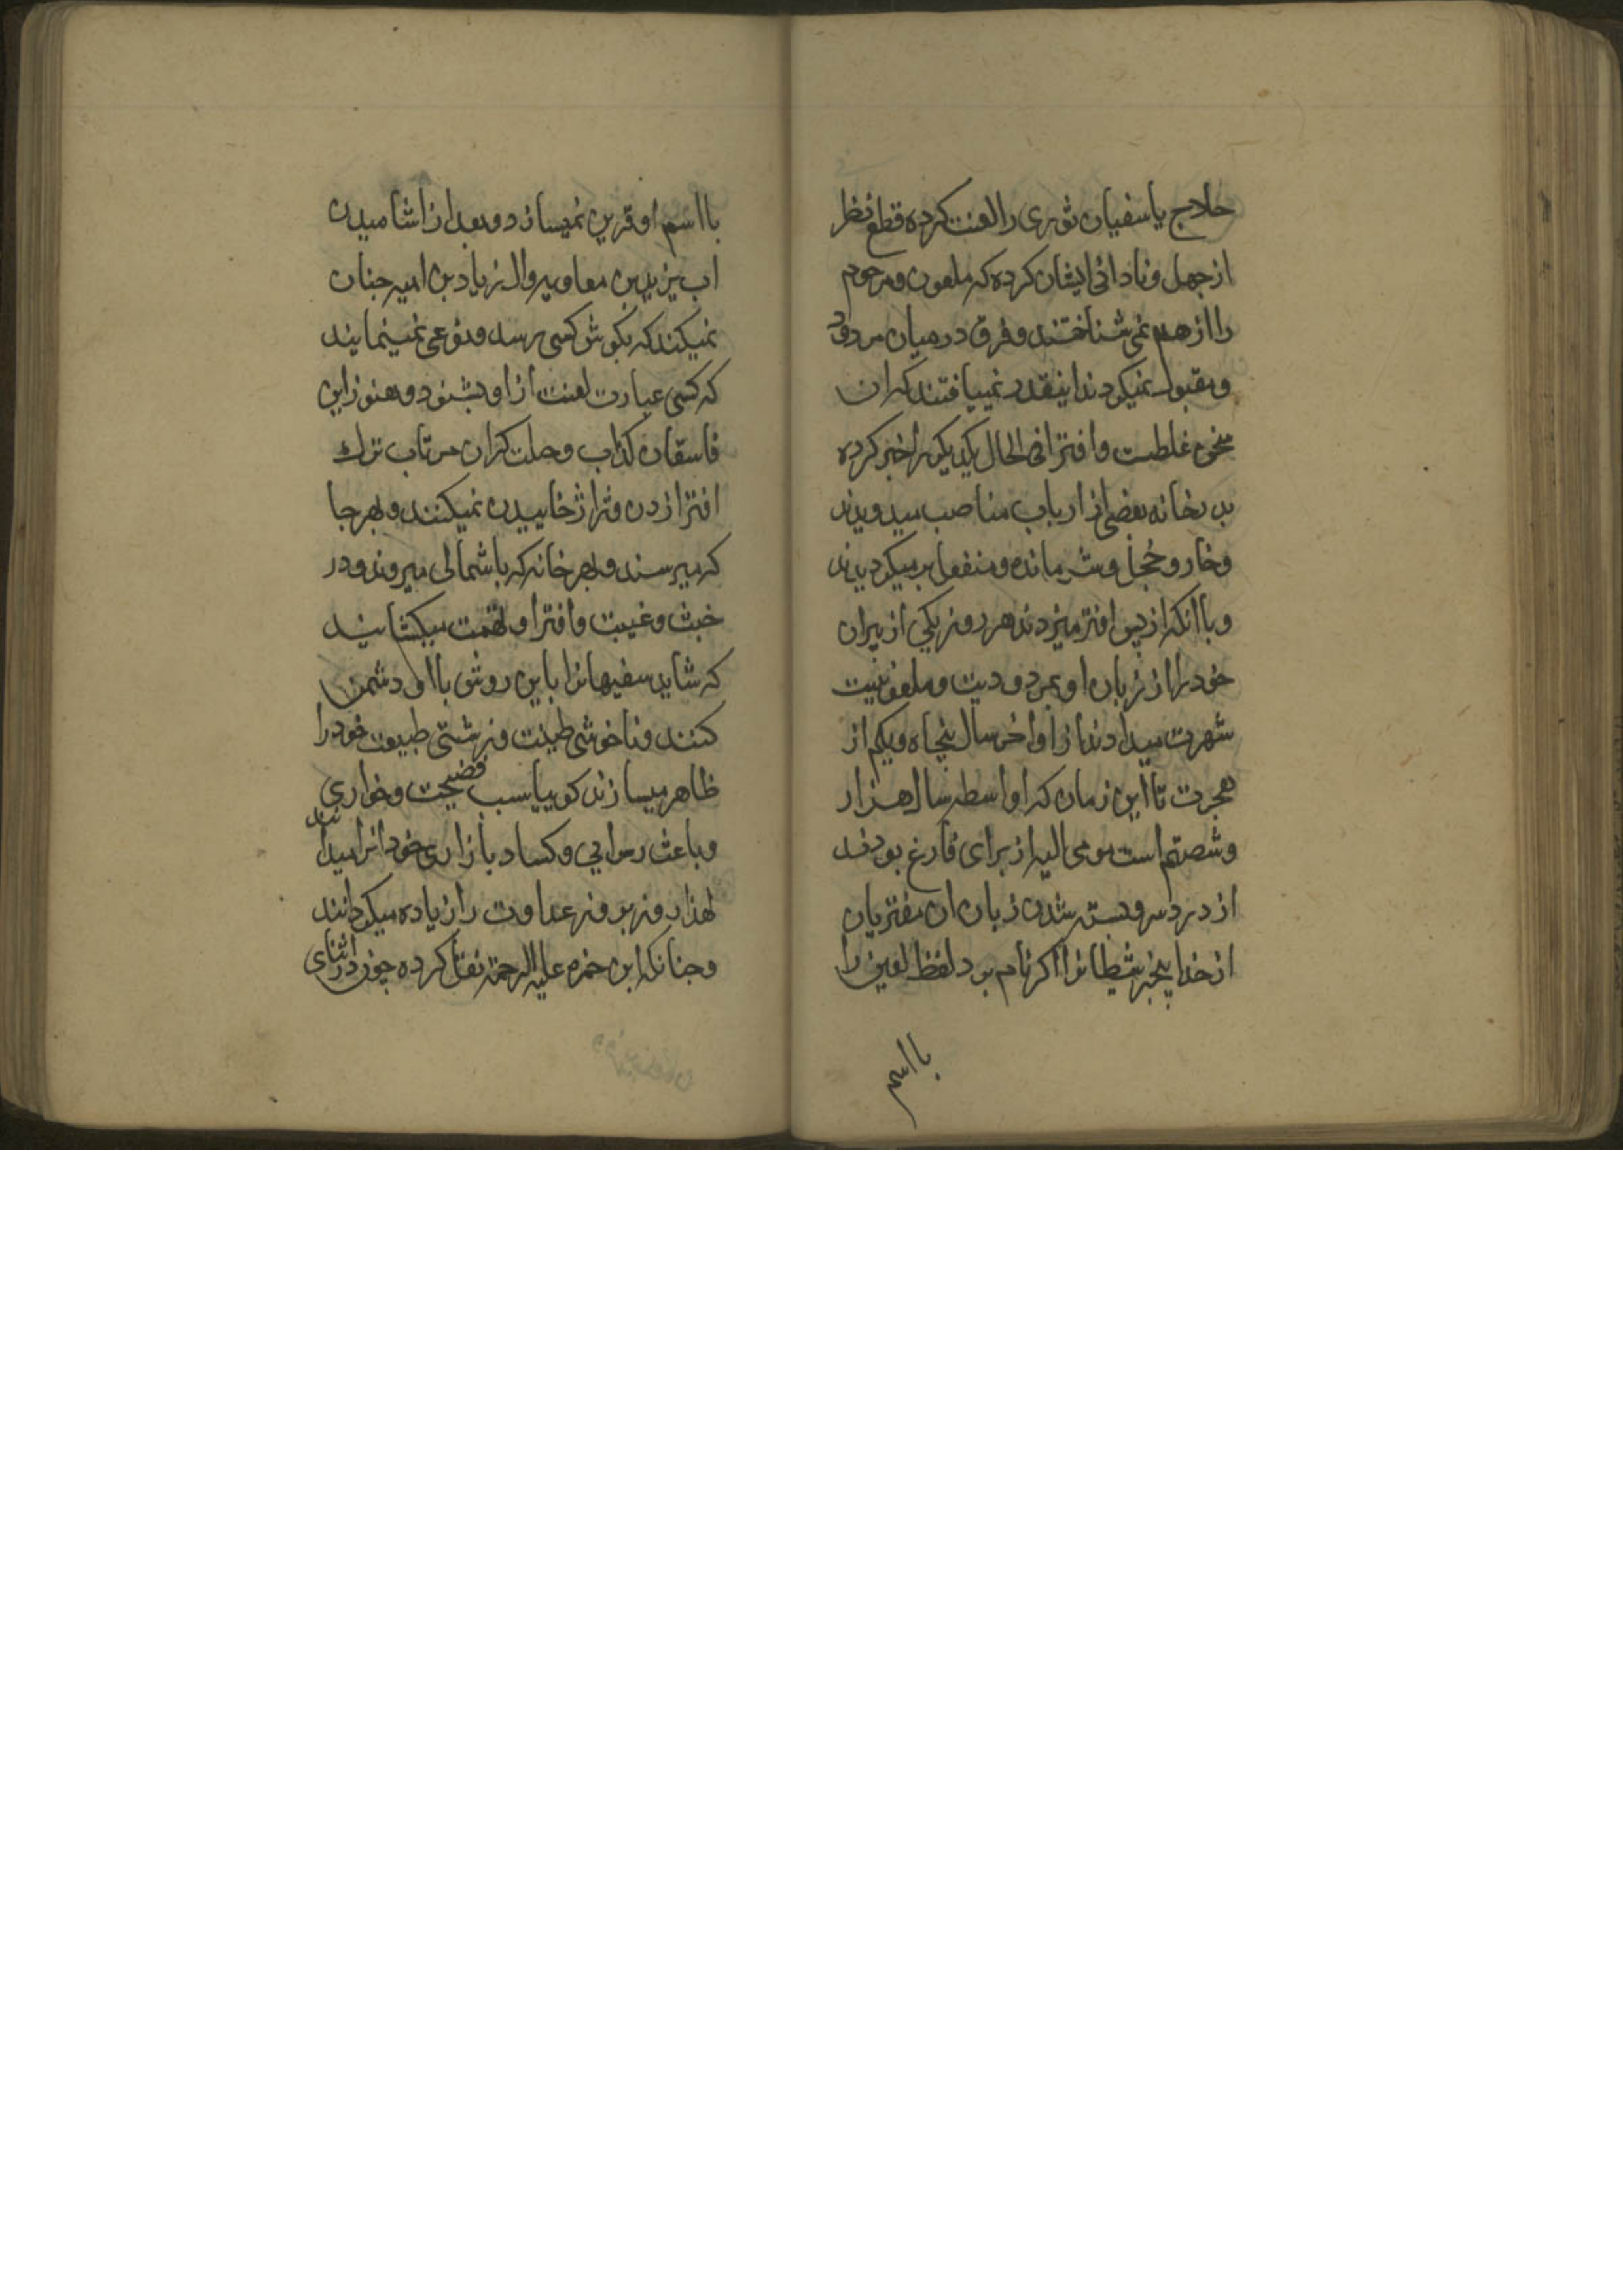 حلاج یا سفیان ثوری را لعنت کرده قطع نظر
از جهل و نادانی ایشان کرده که ملعون و مرحوم
را از هم نمی شناختند و فرق در میان مردود
و مقبول نمیکردند اینقدر نمییافتند که ان
سخن غلطست و افترا فی الحال یکدیکر را خبر کرده
بدر خانه بعضی از ارباب مناصب میدویدند
و خار و خجل و شرمانده و منفعل بر میکردیدند
و با انکه از پس افتر میزدند هر روز یکی از پیران
خود را از زبان او بمردودیت و ملعونیت
شهرت میدادند از اواخر سال پنجاه و یکم از
هجرت تا این زمان که اواسطه سال هزار
و شصتم است مومی الیه از برای فارغ بودند
از دردسر و بسته شدن زبان ان مفتریان
از خدا بیخبر شیطانرا اکر نام برد لفظ لعین را
با اسم
با اسم او قرین نمیسازد و بعد از اشامیدن
اب یزید بن معاویه و ال زیاد بن امیه چنان
نمیکند که بکوش کسی برسد و نوعی نمینمایند
که کسی عبارت لعنت از او بشنود و هنوز این
فاسقان کذاب و حلت کران مرتاب ترک
افترا زدن و ژاژ خاییدن نمیکنند و بهر جا
که میرسند و بهر خانه که باشمالی میروند و در
خبث و غیبت و افترا و تهمت میکشایند
که شاید سفیهانرا باین روش با او دشمن
کنند و ناخوشی طینت و زشتی طبیعت خود را
ظاهر میسازند کوییا سبب فضیحت و خواری
و باعث رسوایی و کساد بازاری خود انرا میدانند
لهذا روز بروز عداوت را زیاده میکردانند
و چنانکه ابن حمزه علیه الرحمة نقل کرده چون در اثنای